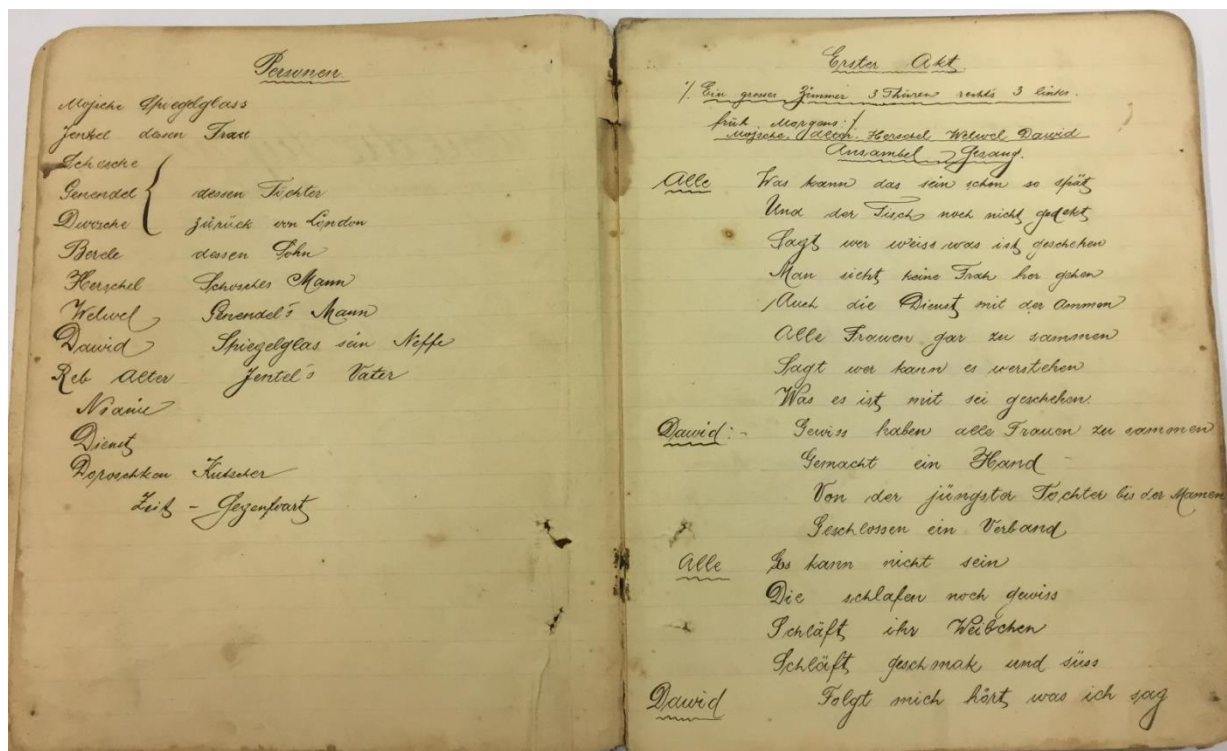 Personen.
Mojsche Spiegelglass
Jentel dessen Frau
Schosche
Genendel dessen Töchter
Dwosche zürück von London
Berele dessen Sohn
Herschel Schosches Mann
Welwel Genendel's Mann
Dawid Spiegelglas sein Neffe
Reb Alter Jentel's Vater
Dienst
Kutscher
Zeit - Gegenwart
Erster Akt.
/. Ein grosses Zimmer 3 Thüren rechts 3 links.
früh Morgens :/
Mojsche, Herschel Welwel Dawid
Ansambel Gesang.
Alle Was kann das sein schon so spät
Und der Tisch noch nicht gedekt
Sagt wer weiss was ist geschehen
Man sieht keine Frau her gehen
Auch die Dienst mit der Ammen
Alle Frauen gar zu sammen
Sagt wer kann es werstehen
Was es ist mit sei geschehen.
Dawid :- Gewiss haben alle Frauen zu sammen
Gemacht ein Hand -
Von der jüngster Tochter bis der Mamen
Geschlossen ein Verband
Alle Es kann nicht sein
Die schlafen noch gewiss
Schläft ihr Weibchen
Schläft geschmak und süss
Dawid Folgt mich hört was ich sag